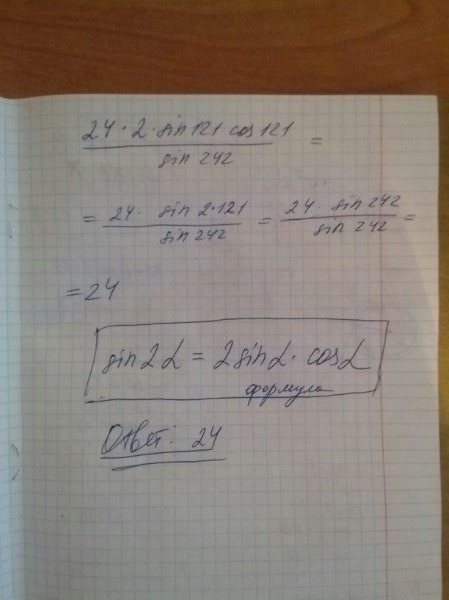 24 · 2 · sin 121 cos 121 / sin 242 =
= 24 · sin 2·121 / sin 242 = 24 · sin 242 / sin 242 =
= 24
sin 2α = 2 sin α · cos α
формула
Ответ: 24